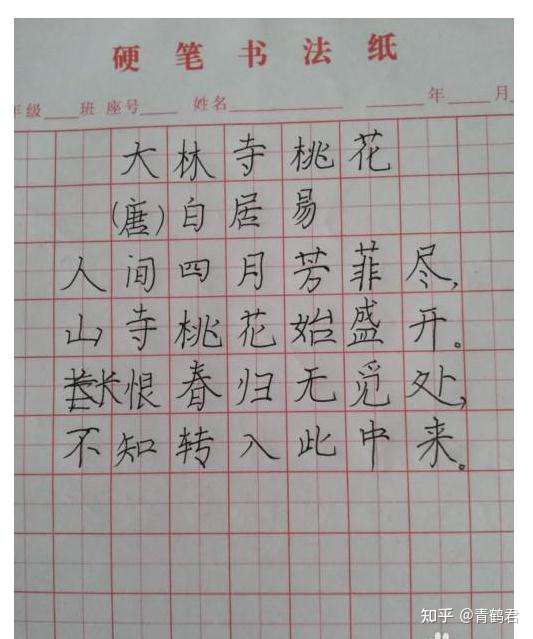 硬笔书法纸
年级 班 座号 姓名 年 月
大林寺桃花
(唐)白居易
人间四月芳菲尽,
山寺桃花始盛开。
长恨春归无觅处,
不知转入此中来。
知乎 @青鹤君